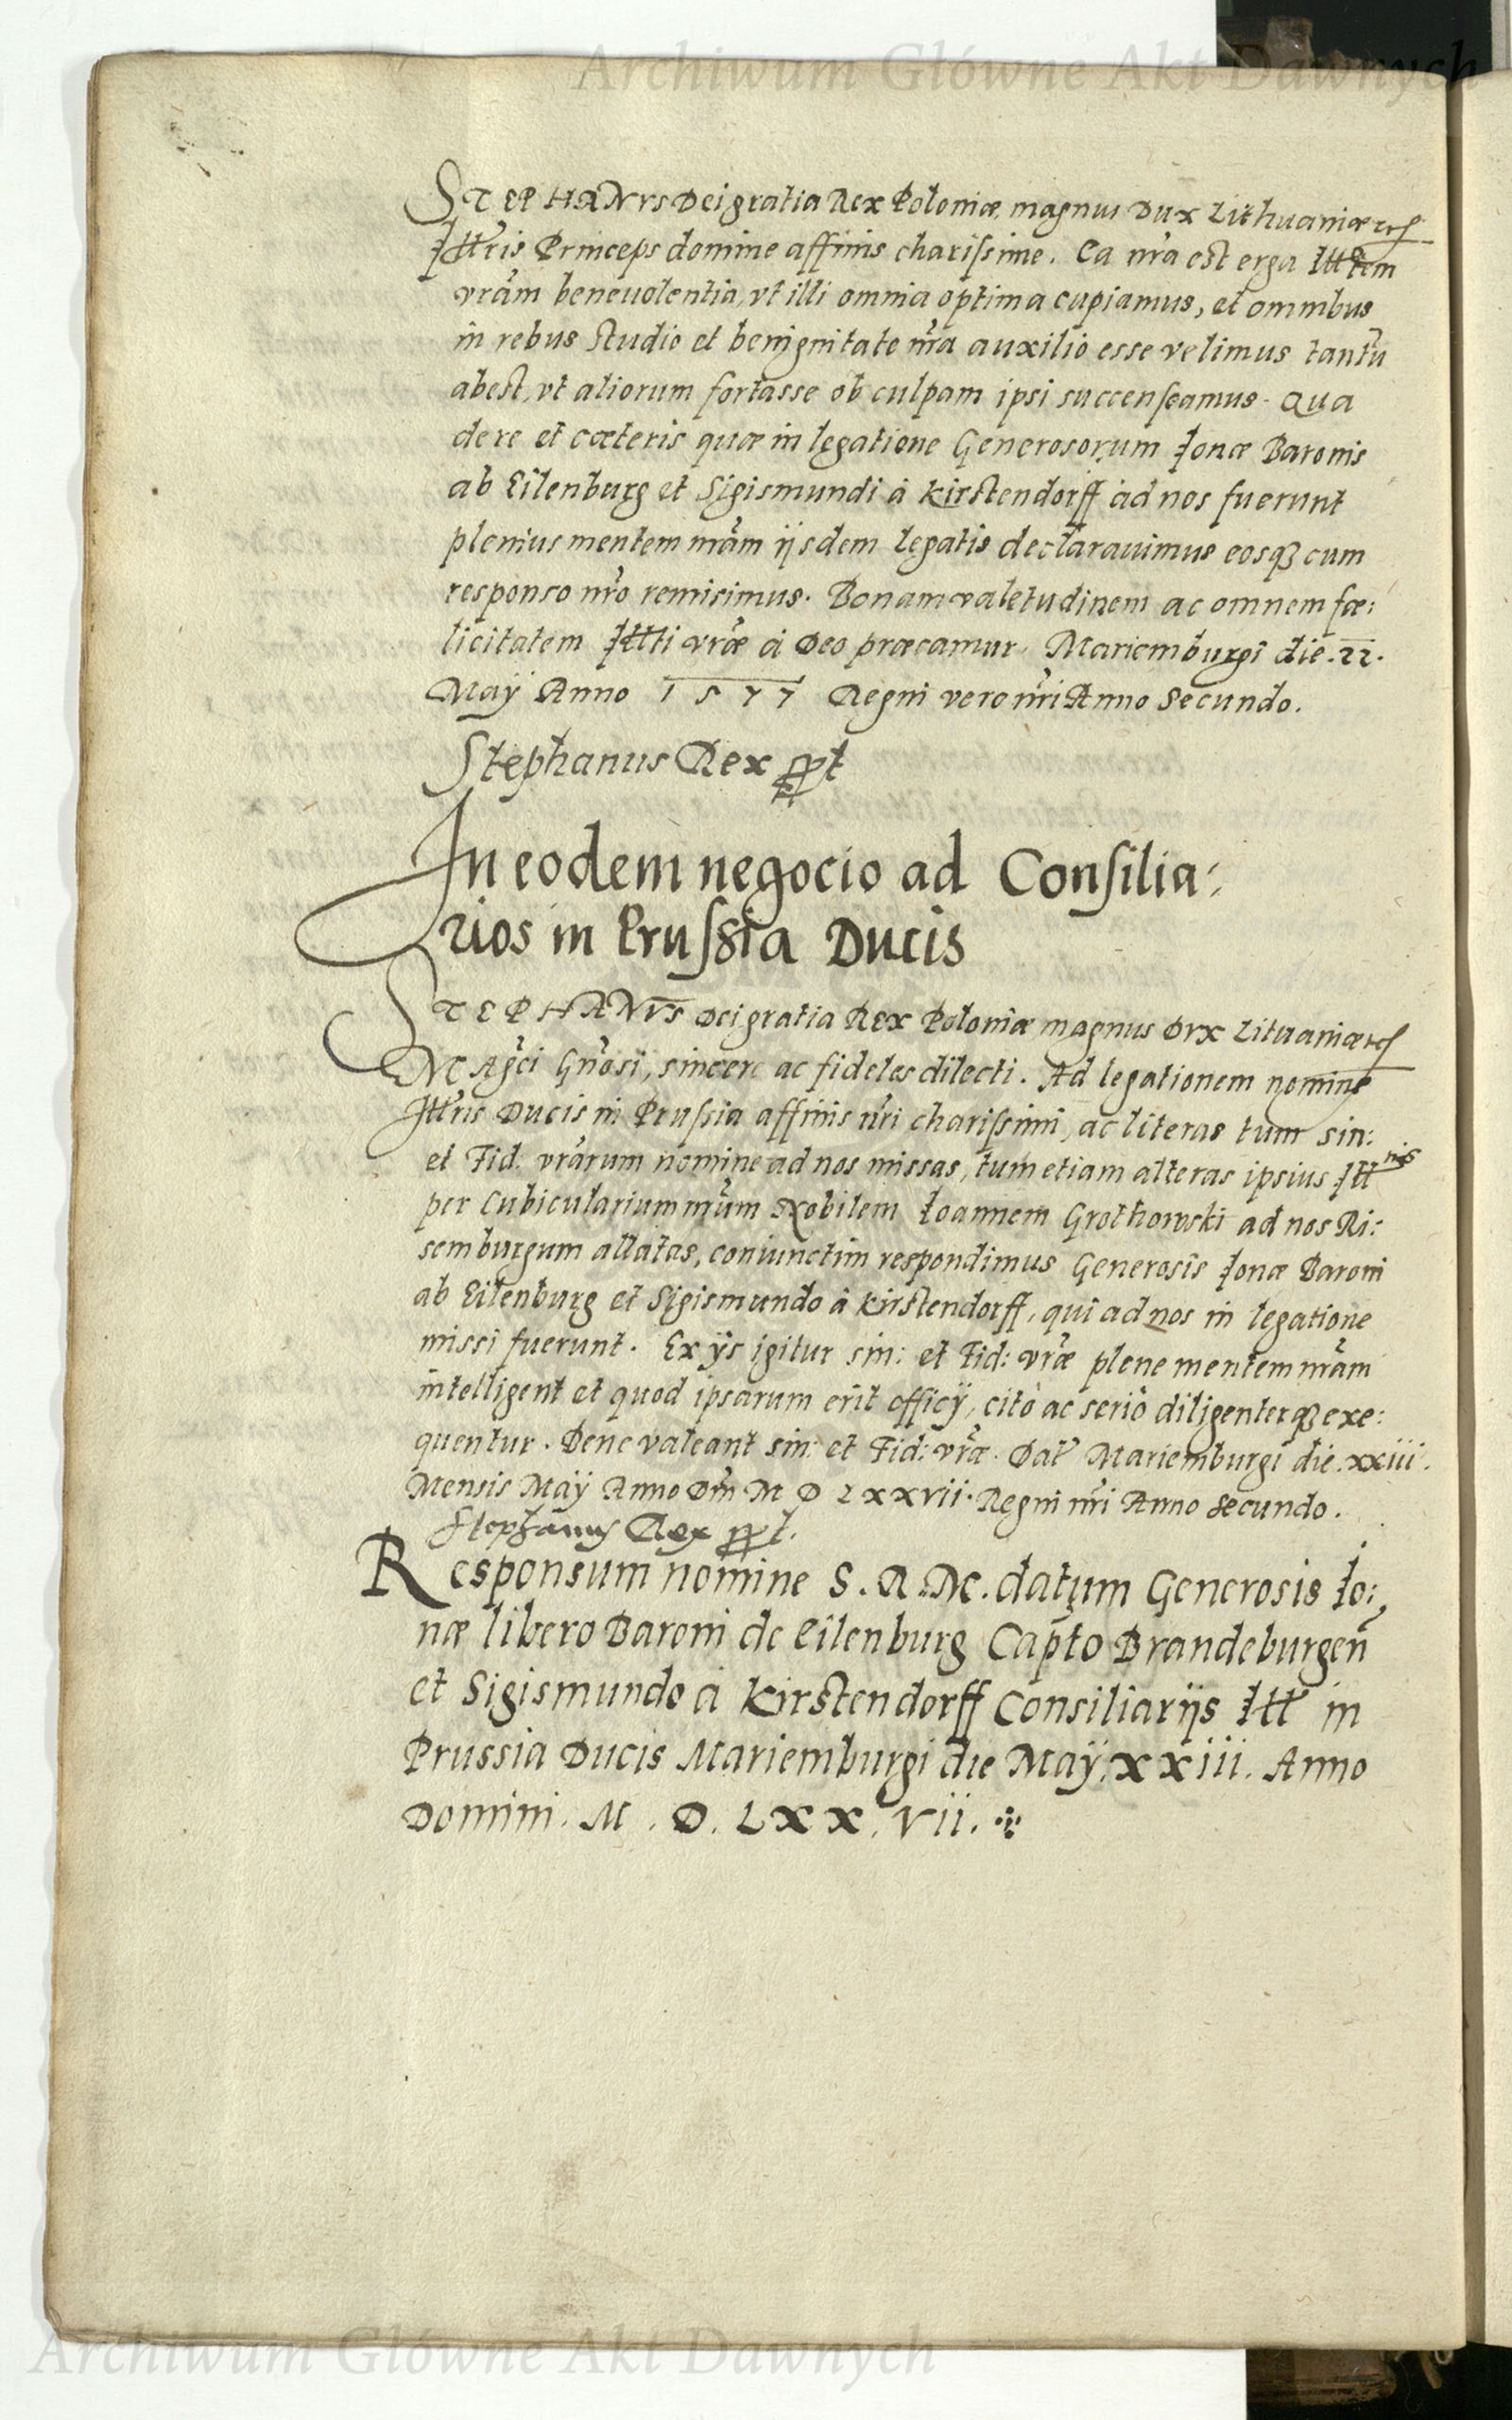 Archiwum Główne Akt Dawnych
STEPHANVS Dei gratia Rex Poloniæ magnus Dux Lithuaniæ etc
Illr̃is Princeps domine affinis charissime. Ea nr̃a est erga Illtem
vrãm beneuolentia, vt illi omnia optima cupiamus, et omnibus
in rebus studio et benignitate nr̃a auxilio esse velimus tantũ
abest, vt aliorum fortasse ob culpam ipsi succenseamus. Qua
de re et cæteris quæ in legatione Generosorum Ionæ Baronis
ab Eilenburg et Sigismundi à Kirstendorff ad nos fuerunt
plenius mentem nrãm ijsdem legatis declarauimus eosq3 cum
responso nrõ remisimus. Bonam valetudinem ac omnem fæ:
licitatem Illti vræ̃ à Deo præcamur. Mariemburgi die. 22.
Maÿ Anno 1577 Regni vero nr̃i Anno Secundo.
Stephanus Rex sspt
In eodem negocio ad Consilia:
rios in Prussia Ducis
STEPHANVS Dei gratia Rex Poloniæ magnus Dvx Lituaniæ etc
Magc̃i Gñosi, sincere ac fideles dilecti. Ad legationem nomine
Illr̃is Ducis in Prussia affinis nr̃i charissimi, ac literas tum sin:
et Fid: vrãrum nomine ad nos missas, tum etiam alteras ipsius Illnis
per Cubicularium nrũm Nobilem Ioannem Grothowski ad nos Ri:
semburgum allatas, coniunctim respondimus Generosis Ionæ Baroni
ab Eilenburg et Sigismundo à Kirstendorff, qui ad nos in legatione
missi fuerunt. Ex ijs igitur sin: et Fid: vræ̃ plene mentem nrãm
intelligent et quod ipsarum erit officÿ, cito ac serio diligenterq3 exe:
quentur. Bene valeant sin: et Fid: vræ̃. Dat̃ Mariemburgi die. xxiii.
Mensis Maÿ Anno Dñi M D Lxxvii. Regni nr̃i Anno Secundo.
Stephanus Rex sspt.
Responsum nomine S. R. M. datum Generosis Io:
næ libero Baroni de Eilenburg Capt̃o Brandeburgeñ
et Sigismundo à Kirstendorff Consiliarijs Ill̃ in
Prussia Ducis Mariemburgi die Maÿ. xxiii. Anno
Domini. M. D. Lxx. vii.
Archiwum Główne Akt Dawnych